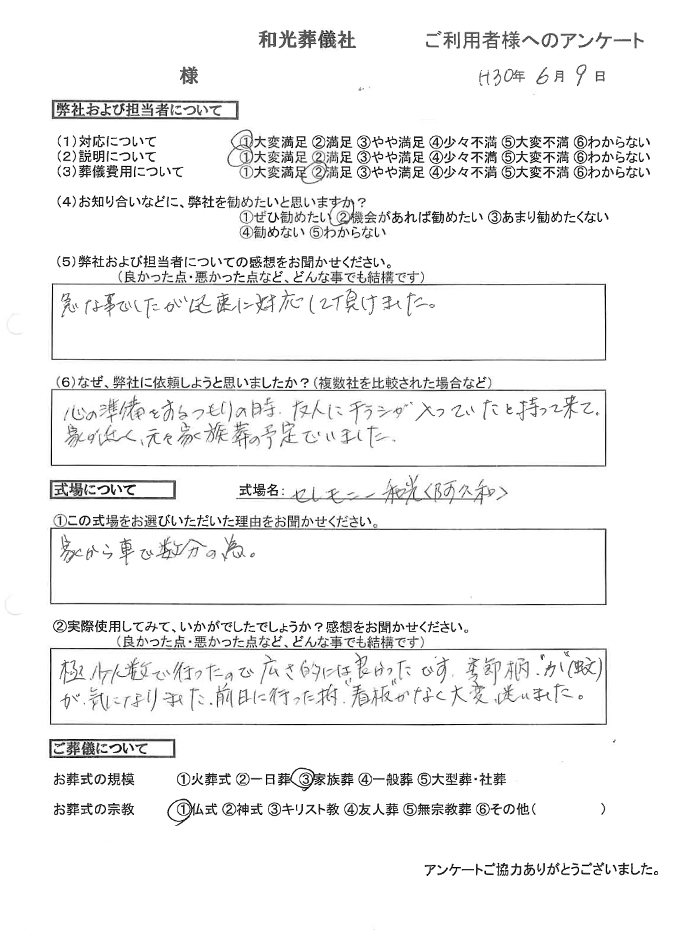 和光葬儀社 ご利用者様へのアンケート
様 H30年 6月 9日
弊社および担当者について
(1)対応について ①大変満足 ②満足 ③やや満足 ④少々不満 ⑤大変不満 ⑥わからない
(2)説明について ①大変満足 ②満足 ③やや満足 ④少々不満 ⑤大変不満 ⑥わからない
(3)葬儀費用について ①大変満足 ②満足 ③やや満足 ④少々不満 ⑤大変不満 ⑥わからない
(4)お知り合いなどに、弊社を勧めたいと思いますか?
①ぜひ勧めたい ②機会があれば勧めたい ③あまり勧めたくない
④勧めない ⑤わからない
(5)弊社および担当者についての感想をお聞かせください。
(良かった点・悪かった点など、どんな事でも結構です)
急な事でしたが迅速に対応して頂けました。
(6)なぜ、弊社に依頼しようと思いましたか?(複数社を比較された場合など)
心の準備をするつもりの時、友人にチラシが入っていたと持って来て。
家が近く、元々家族葬の予定でいました。
式場について 式場名: セレモニー和光〈阿久和〉
①この式場をお選びいただいた理由をお聞かせください。
家から車で数分の為。
②実際使用してみて、いかがでしたでしょうか?感想をお聞かせください。
(良かった点・悪かった点など、どんな事でも結構です)
極少人数で行ったので広さ的には良かったです。季節柄、"か"(蚊)
が、気になりました。前日に行った時、"看板"がなく大変、迷いました。
ご葬儀について
お葬式の規模 ①火葬式 ②一日葬 ③家族葬 ④一般葬 ⑤大型葬・社葬
お葬式の宗教 ①仏式 ②神式 ③キリスト教 ④友人葬 ⑤無宗教葬 ⑥その他( )
アンケートご協力ありがとうございました。